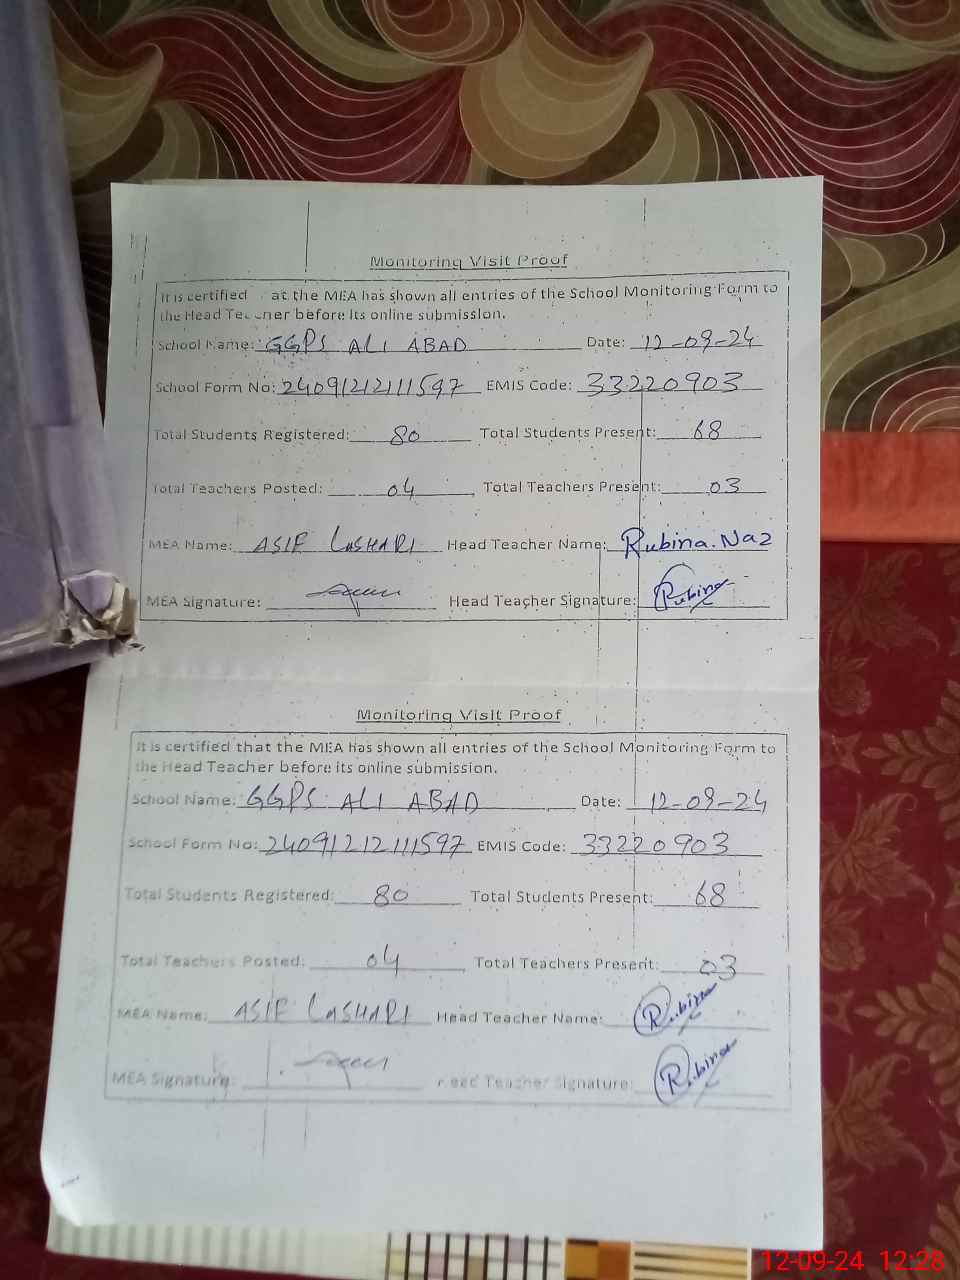 Monitoring Visit Proof
It is certified at the MEA has shown all entries of the School Monitoring Form to
the Head Teacher before its online submission.
School Name: GGPS ALI ABAD Date: 12-09-24
School Form No: 24091212111597 EMIS Code: 33220903
Total Students Registered: 80 Total Students Present: 68
Total Teachers Posted: 04 Total Teachers Present: 03
MEA Name: ASIF LASHARI Head Teacher Name: Rubina. Naz
MEA Signature: Head Teacher Signature: Rubina
Monitoring Visit Proof
It is certified that the MEA has shown all entries of the School Monitoring Form to
the Head Teacher before its online submission.
School Name: GGPS ALI ABAD Date: 12-09-24
School Form No: 24091212111597 EMIS Code: 33220903
Total Students Registered: 80 Total Students Present: 68
Total Teachers Posted: 04 Total Teachers Present: 03
MEA Name: ASIF LASHARI Head Teacher Name: Rubina
MEA Signature: Head Teacher Signature: Rubina
12-09-24 12:28